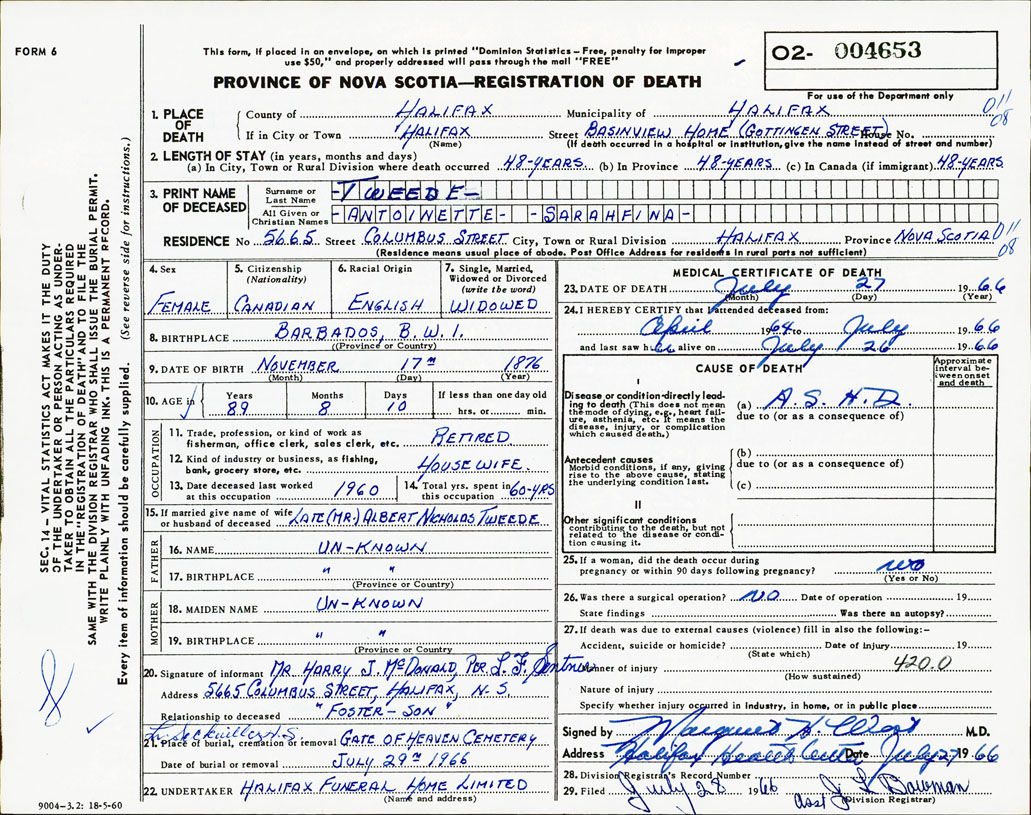 FORM 6
This form, if placed in an envelope, on which is printed "Dominion Statistics – Free, penalty for improper
use $50," and properly addressed will pass through the mail "FREE"
PROVINCE OF NOVA SCOTIA—REGISTRATION OF DEATH
02- 004653
For use of the Department only
011
08
1. PLACE OF DEATH
County of HALIFAX Municipality of HALIFAX
If in City or Town HALIFAX Street BASINVIEW HOME (GOTTINGEN STREET) House No.
(Name) (If death occurred in a hospital or institution, give the name instead of street and number)
2. LENGTH OF STAY (in years, months and days)
(a) In City, Town or Rural Division where death occurred 48-YEARS (b) In Province 48-YEARS (c) In Canada (if immigrant) 48-YEARS
3. PRINT NAME OF DECEASED
Surname or Last Name -TWEEDE-
All Given or Christian Names -ANTOINETTE- -SARAHFINA-
RESIDENCE No 5665 Street COLUMBUS STREET City, Town or Rural Division HALIFAX Province NOVA SCOTIA 011
(Residence means usual place of abode. Post Office Address for residents in rural parts not sufficient) 08
4. Sex
FEMALE
5. Citizenship (Nationality)
CANADIAN
6. Racial Origin
ENGLISH
7. Single, Married, Widowed or Divorced (write the word)
WIDOWED
8. BIRTHPLACE BARBADOS, B.W.I.
(Province or Country)
9. DATE OF BIRTH NOVEMBER 17TH 1876
(Month) (Day) (Year)
10. AGE in Years 89 Months 8 Days 10 If less than one day old hrs. or min.
OCCUPATION
11. Trade, profession, or kind of work as
fisherman, office clerk, sales clerk, etc. RETIRED
12. Kind of industry or business, as fishing,
bank, grocery store, etc. HOUSEWIFE.
13. Date deceased last worked at this occupation 1960
14. Total yrs. spent in this occupation 60-YRS
15. If married give name of wife
or husband of deceased LATE (MR.) ALBERT NICHOLAS TWEEDE
FATHER
16. NAME UN-KNOWN
17. BIRTHPLACE " "
(Province or Country)
MOTHER
18. MAIDEN NAME UN-KNOWN
19. BIRTHPLACE " "
(Province or Country)
20. Signature of informant MR. HARRY J. McDONALD, PER. L. F.
Address 5665 COLUMBUS STREET, HALIFAX, N.S.
Relationship to deceased "FOSTER-SON"
Lr. Sackville N.S.
21. Place of burial, cremation or removal GATE OF HEAVEN CEMETERY
Date of burial or removal JULY 29TH 1966
22. UNDERTAKER HALIFAX FUNERAL HOME LIMITED
(Name and address)
9004-3.2: 18-5-60
MEDICAL CERTIFICATE OF DEATH
23. DATE OF DEATH July 27 1966
(Month) (Day) (Year)
24. I HEREBY CERTIFY that I attended deceased from:
April 1964 to July 1966
and last saw her alive on July 26 1966
CAUSE OF DEATH
Approximate interval between onset and death
I
Disease or condition directly leading to death (This does not mean the mode of dying, e.g., heart failure, asthenia, etc. It means the disease, injury, or complication which caused death.)
(a) A.S.H.D.
due to (or as a consequence of)
Antecedent causes
Morbid conditions, if any, giving rise to the above cause, stating the underlying condition last.
(b)
due to (or as a consequence of)
(c)
II
Other significant conditions
contributing to the death, but not related to the disease or condition causing it.
25. If a woman, did the death occur during
pregnancy or within 90 days following pregnancy? NO
(Yes or No)
26. Was there a surgical operation? NO Date of operation 19
State findings Was there an autopsy?
27. If death was due to external causes (violence) fill in also the following:–
Accident, suicide or homicide? Date of injury 19
(State which)
Manner of injury 420.0
(How sustained)
Nature of injury
Specify whether injury occurred in industry, in home, or in public place
Signed by Margaret H. West M.D.
Address Halifax Health Center Date July 27 1966
28. Division Registrar's Record Number
29. Filed July 28 1966 Asst J L Bowman
(Division Registrar)
SEC. 14 – VITAL STATISTICS ACT MAKES IT THE DUTY
OF THE UNDERTAKER OR PERSON ACTING AS UNDER-
TAKER TO OBTAIN ALL THE PARTICULARS REQUIRED
IN THE "REGISTRATION OF DEATH" AND TO FILE THE
SAME WITH THE DIVISION REGISTRAR WHO SHALL ISSUE THE BURIAL PERMIT.
WRITE PLAINLY WITH UNFADING INK. THIS IS A PERMANENT RECORD.
Every item of information should be carefully supplied. (See reverse side for instructions.)